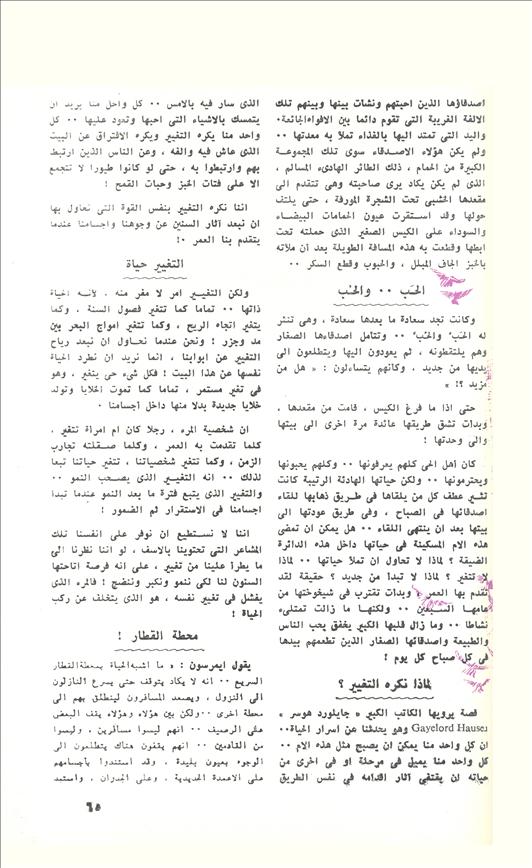 اصدقاؤها الذين احبتهم ونشأت بينها وبينهم تلك
الالفة الغريبة التى تقوم دائما بين الافواه الجائعة .
واليد التى تمتد اليها بالغذاء تملأ به معدتها ..
ولم يكن هؤلاء الاصدقاء سوى تلك المجموعة
الكبيرة من الحمام ، ذلك الطائر الهادىء المسالم ،
الذى لم يكن يكاد يرى صاحبته وهى تتقدم الى
مقعدها الخشبى تحت الشجرة المورقة ، حتى يلتف
حولها وقد استقرت عيون الحمامات البيضاء
والسوداء على الكيس الصغير الذى حملته تحت
ابطها وقطعت به هذه المسافة الطويلة بعد ان ملأته
بالخبز الجاف المبلل ، والحبوب وقطع السكر ..
الحَب .. والحُب
وكانت تجد سعادة ما بعدها سعادة ، وهى تنثر
له الحَب والحُب .. وتتأمل اصدقاءها الصغار
وهم يلتقطونه ، ثم يعودون اليها ويتطلعون الى
يديها من جديد . وكأنهم يتساءلون : « هل من
مزيد ؟! »
حتى اذا ما فرغ الكيس ، قامت من مقعدها ،
وبدأت تشق طريقها عائدة مرة اخرى الى بيتها
والى وحدتها !
كان اهل الحى كلهم يعرفونها .. وكلهم يحبونها
ويحترمونها .. ولكن حياتها الهادئة الرتيبة كانت
تثير عطف كل من يلقاها فى طريق ذهابها للقاء
اصدقائها فى الصباح ، وفى طريق عودتها الى
بيتها بعد ان ينتهى اللقاء .. هل يمكن ان تمضى
هذه الام المسكينة فى حياتها داخل هذه الدائرة
الضيقة ؟ لماذا لا تحاول ان تملأ حياتها .. لماذا
لا تتغير ؟ لماذا لا تبدأ من جديد ؟ حقيقة لقد
تقدم بها العمر ، وبدأت تقترب فى شيخوختها من
عامها السبعين .. ولكنها ما زالت تمتلىء
نشاطا .. وما زال قلبها الكبير يخفق بحب الناس
والطبيعة واصدقائها الصغار الذين تطعمهم بيدها
فى كل صباح كل يوم !
لماذا نكره التغيير ؟
قصة يرويها الكاتب الكبير « جايلورد هوسر »
Gayelord Hauser وهو يحدثنا عن اسرار الحياة ..
ان كل واحد منا يمكن ان يصبح مثل هذه الام ..
كل واحد منا يميل فى مرحلة او فى اخرى من
حياته ان يقتفى آثار اقدامه فى نفس الطريق
الذى سار فيه بالامس .. كل واحد منا يريد ان
يتمسك بالاشياء التى احبها وتعود عليها .. كل
واحد منا يكره التغيير ويكره الافتراق عن البيت
الذى عاش فيه والفه ، وعن الناس الذين ارتبط
بهم وارتبطوا به ، حتى لو كانوا طيورا لا تتجمع
الا على فتات الخبز وحبات القمح !
اننا نكره التغيير بنفس القوة التى نحاول بها
ان نبعد آثار السنين عن وجوهنا واجسامنا عندما
يتقدم بنا العمر .!
التغيير حياة
ولكن التغيير امر لا مفر منه . لأنه الحياة
ذاتها .. تماما كما تتغير فصول السنة ، وكما
يتغير اتجاه الريح ، وكما تتغير امواج البحر بين
مد وجزر ! ونحن عندما نحاول ان نبعد رياح
التغيير عن ابوابنا ، انما نريد ان نطرد الحياة
نفسها عن هذا البيت ! فكل شىء حى يتغير ، وهو
فى تغير مستمر ، تماما كما تموت الخلايا وتولد
خلايا جديدة بدلا منها داخل أجسامنا .
ان شخصية المرء ، رجلا كان ام امرأة تتغير ،
كلما تقدمت به العمر ، وكلما صقلته تجارب
الزمن ، وكما تتغير شخصياتنا ، تتغير حياتنا تبعا
لذلك .. انه التغيير الذى يصحب النمو ..
والتغيير الذى يتبع فترة ما بعد النمو عندما تبدأ
اجسامنا فى الاستقرار ثم الضمور !
اننا لا نستطيع ان نوفر على انفسنا تلك
المشاعر التى تحتوينا بالاسف ، لو اننا نظرنا الى
ما يطرأ علينا من تغيير ، على انه فرصة اتاحتها
السنون لنا لكى ننمو ونكبر وننضج ! فالمرء الذى
يفشل فى تغيير نفسه ، هو الذى يتخلف عن ركب
الحياة !
محطة القطار !
يقول ايمرسون : « ما اشبه الحياة بمحطة القطار
السريع .. انه لا يكاد يتوقف حتى يسرع النازلون
الى النزول ، ويصعد المسافرون لينطلق بهم الى
محطة اخرى .. ولكن بين هؤلاء وهؤلاء يقف البعض
على الرصيف .. انهم ليسوا مسافرين ، وليسوا
من القادمين .. انهم يقفون هناك يتطلعون الى
الوجوه بعيون بليدة ، وقد استندوا بأجسامهم
على الاعمدة الحديدية ، وعلى الجدران . واستبد
٦٥